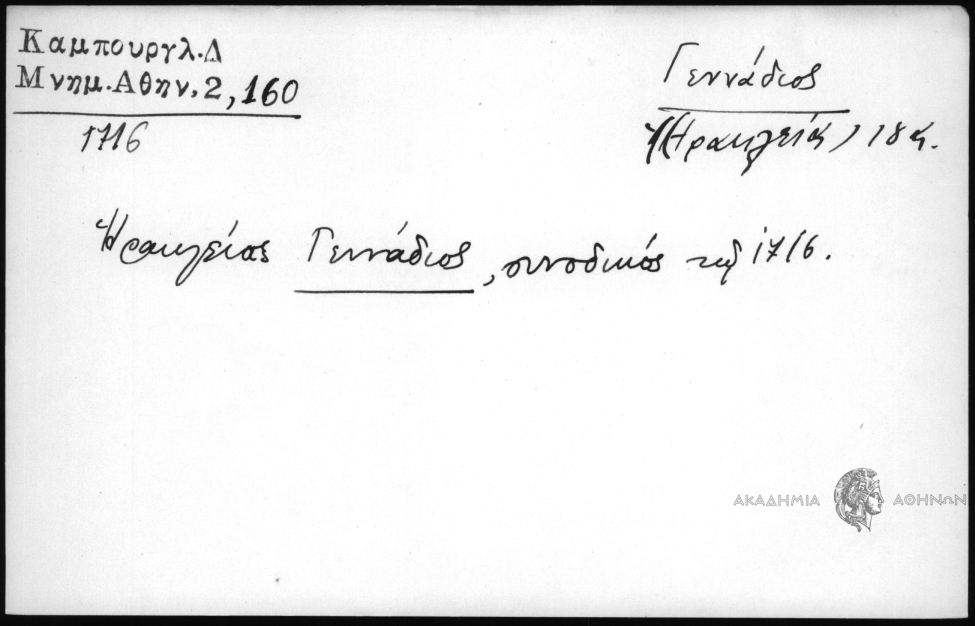 Καμπουργλ.Δ
Μνημ.Αθην.2,160
1716
Γεννάδιος
(Ἡρακλείας) 18 α.
Ἡρακλείας Γεννάδιος, συνοδικός τῷ 1716.
ΑΚΑΔΗΜΙΑ ΑΘΗΝΩΝ